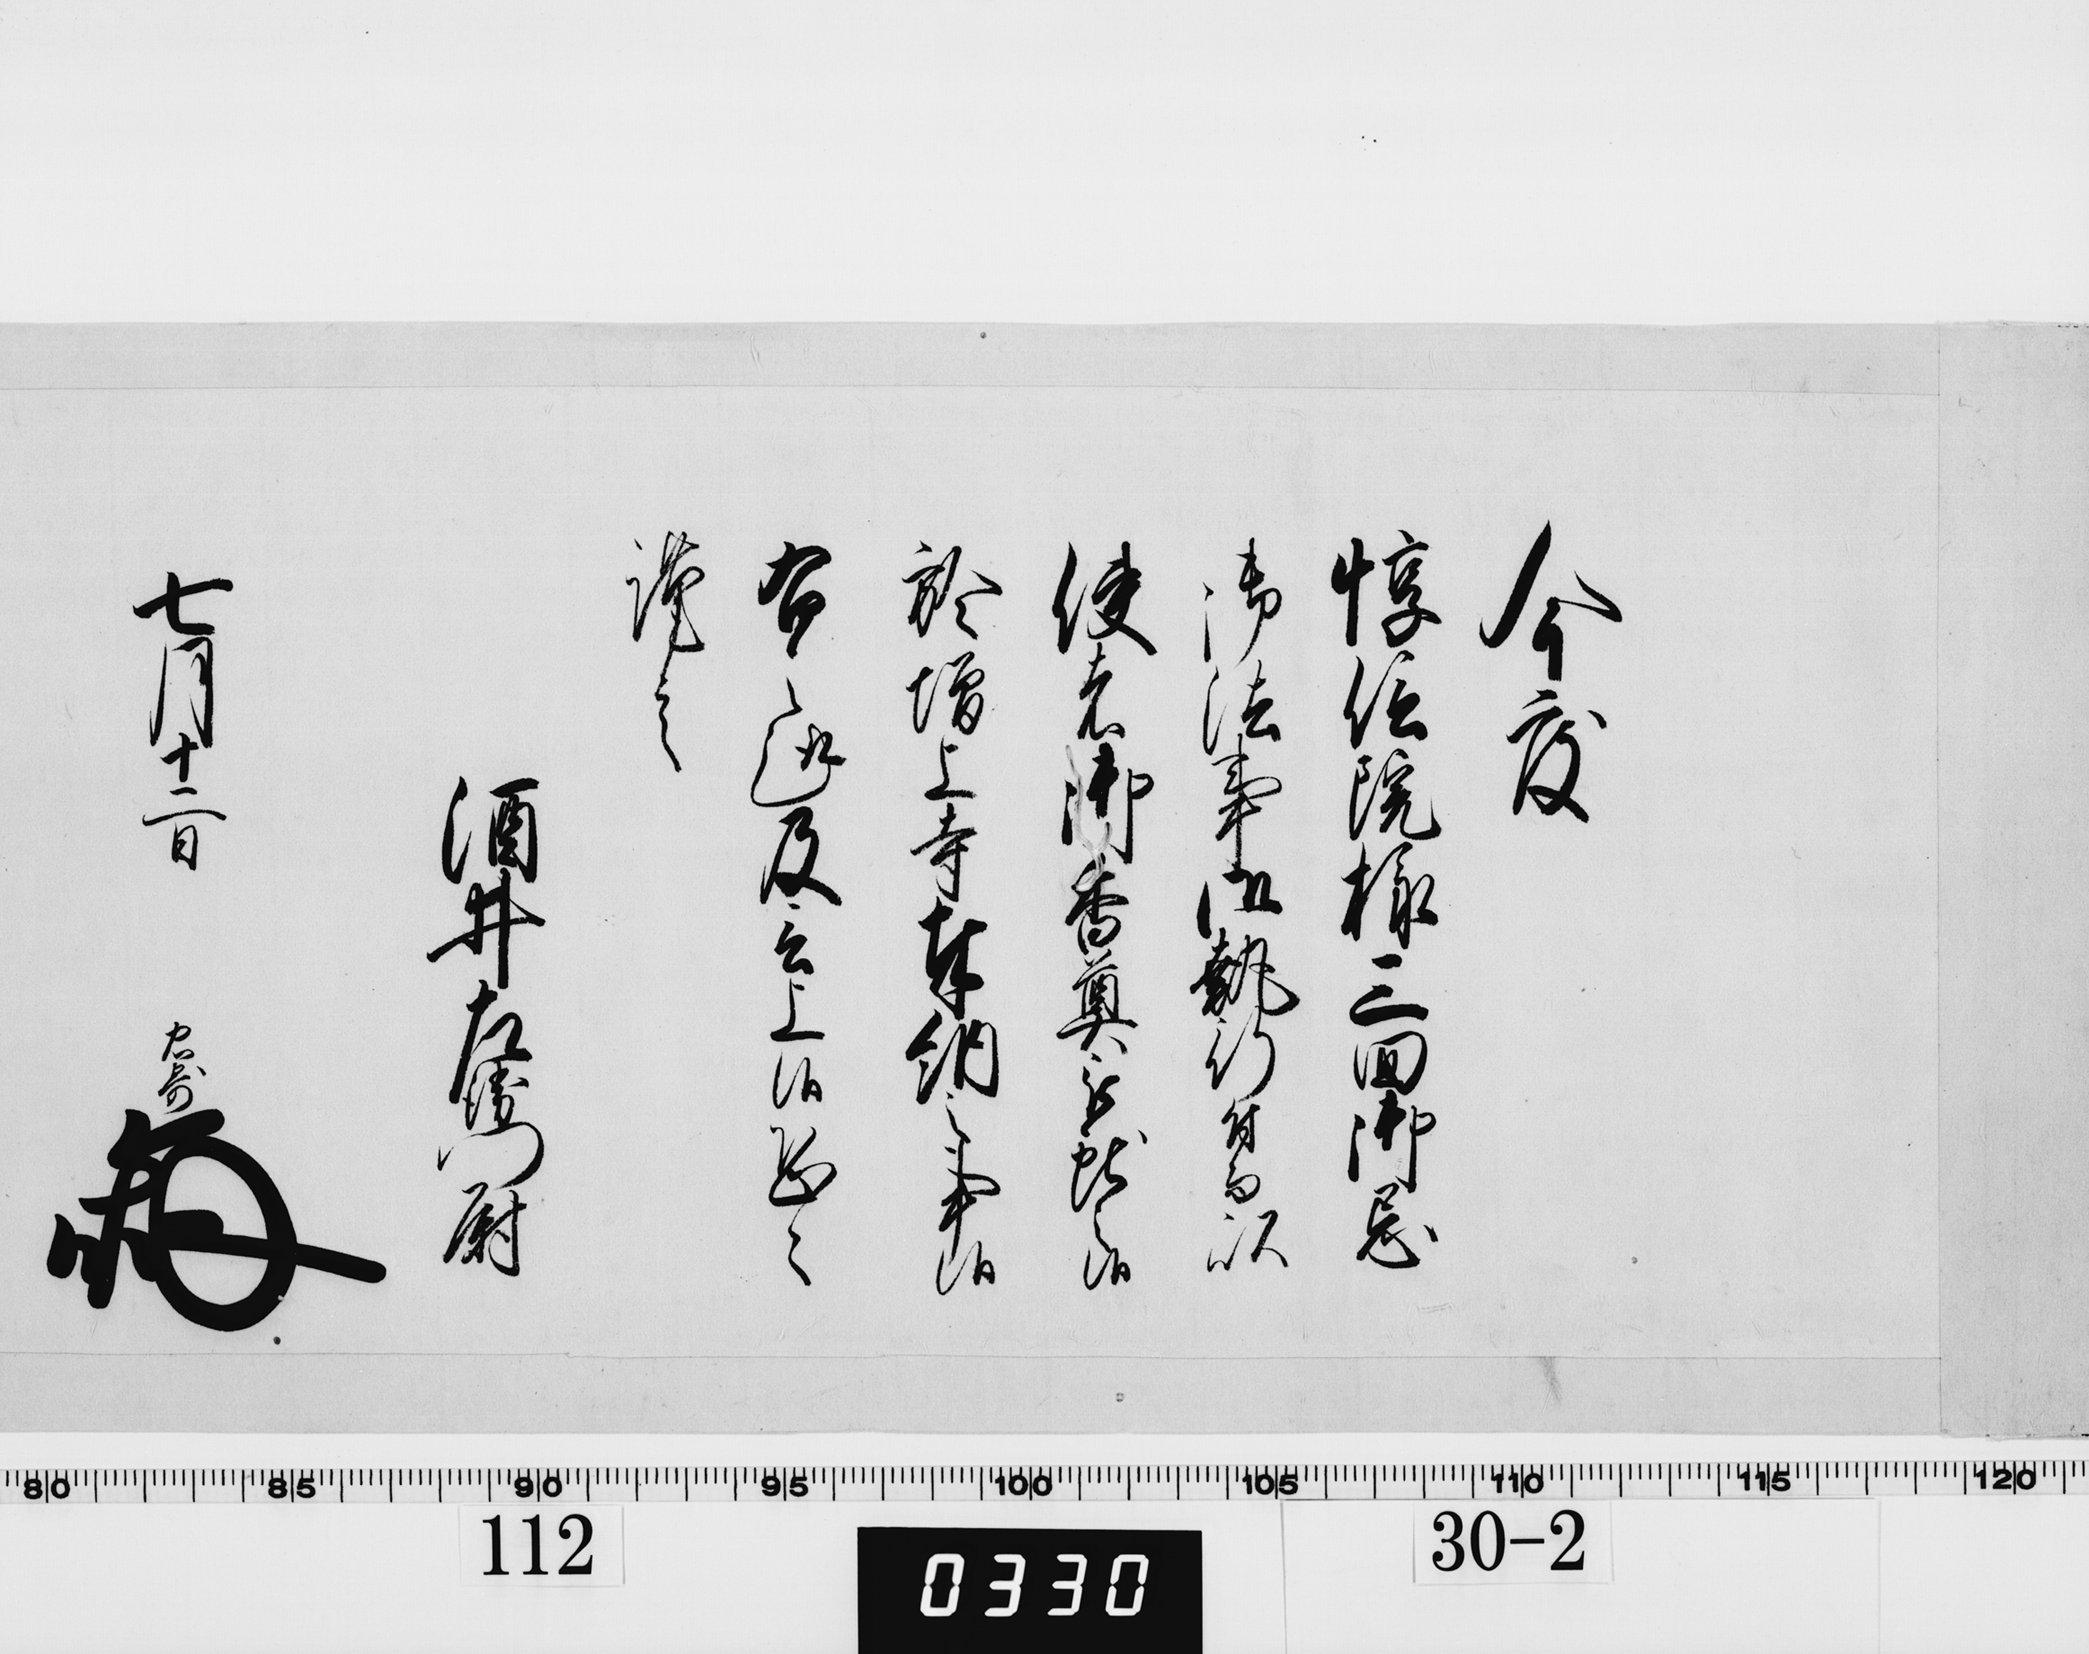 今度
惇信院様三回御忌
御法事御執行付而以
使者御香奠被献之候
於増上寺奉納之事候
右之趣及言上候恐々
謹言
酒井左衛門尉
七月十二日
忠寄
80 85 90 95 100 105 110 115 120
112
0330
30-2